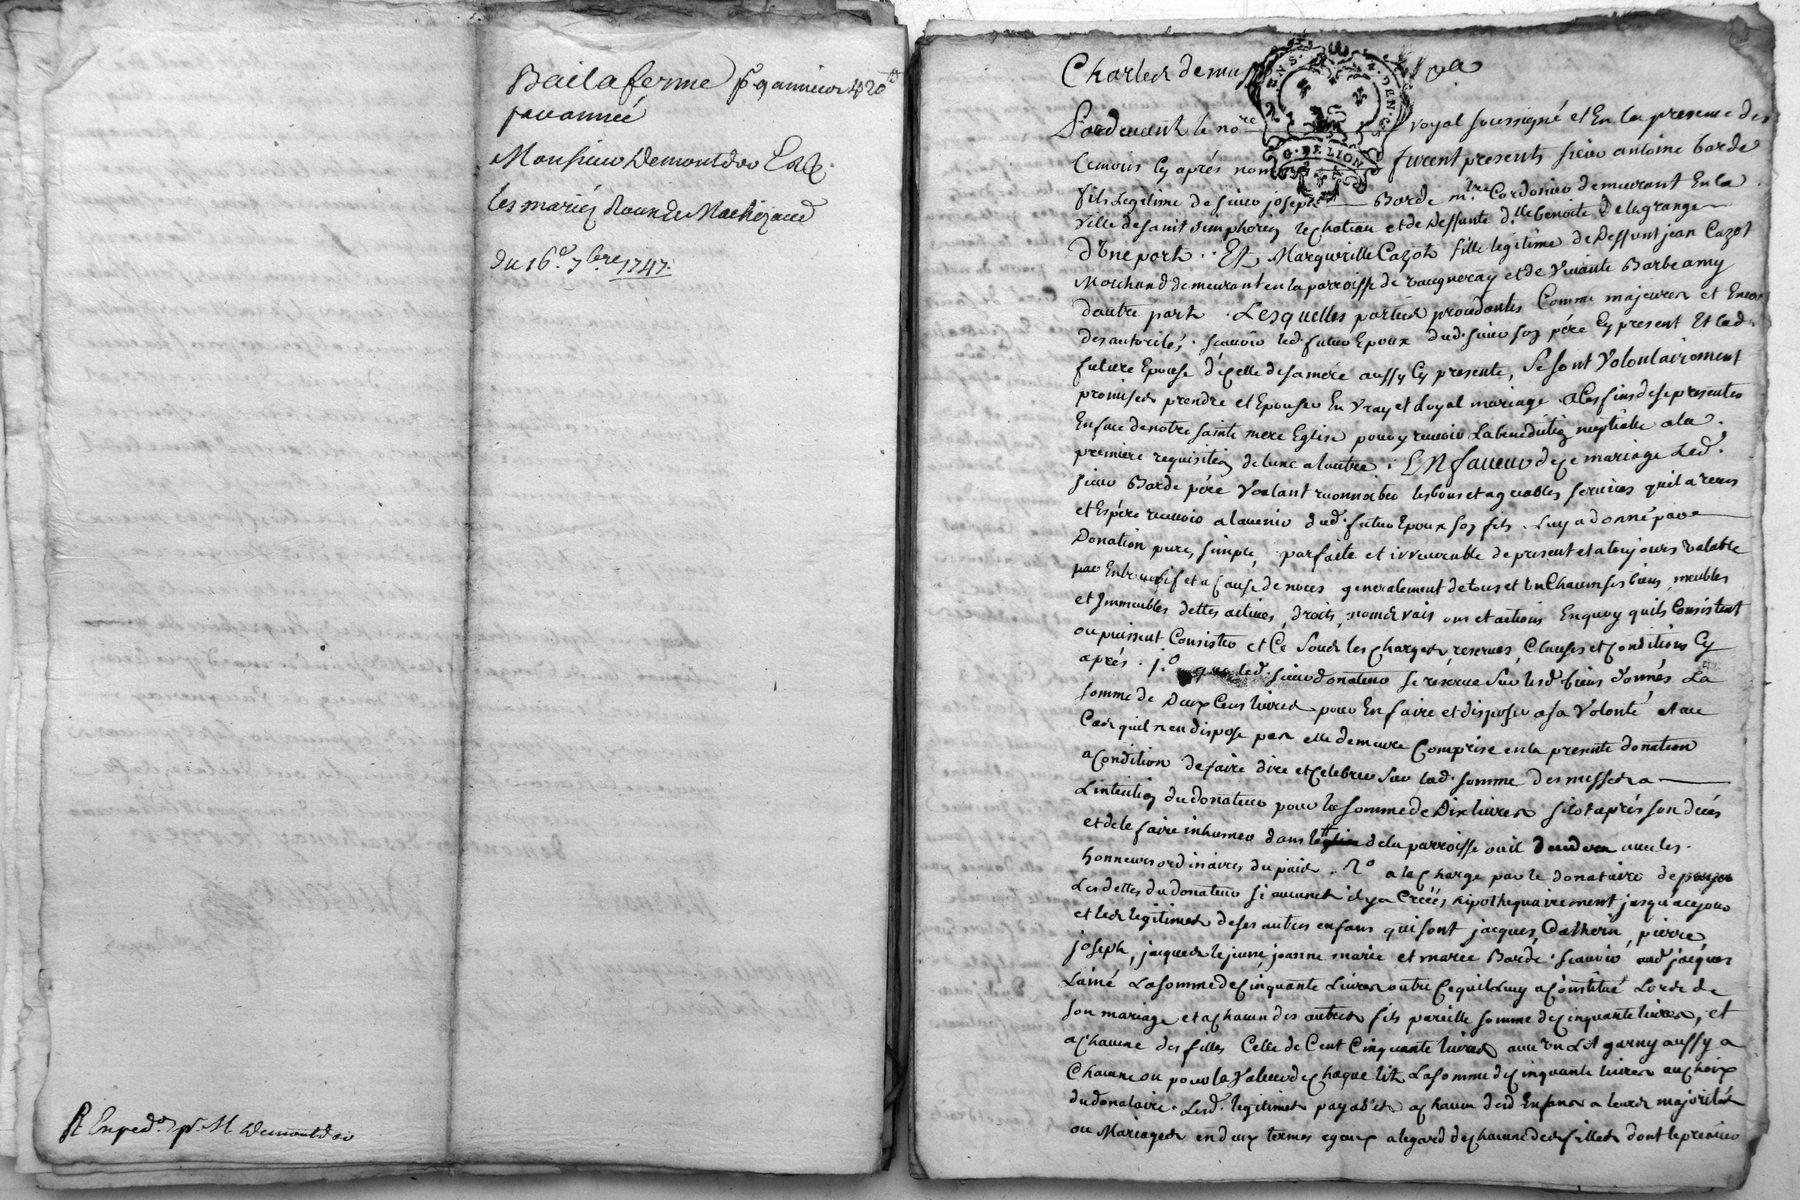 Bail a ferme pr 9 années 420tt
par année
Monsieur Demontdor Et
les mariez
du 16e 7bre 1747.
R Exped. pr. M Demontdor
Charles de mas
G. DE LION
Pardevant le nore royal soussigné et En la presence des
temoins Cy aprés nommés furent presents sieur antoine barde
fils Legitime de sieur joseph Barde mtre Cordonier demeurant En la
Ville de saint simphorien le chateau et de Deffunte dlle benoite Delagrange
d'Une part. Et Margueritte Cazot fille legitime de Deffunt jean Cazot
Marchand demeurant en la parroisse de vaugneray et de Vivante Barbe amy
dautre part. Lesquelles parties procedantes Comme majeures et Encor
des autorités, scavoir led. futur Epoux dud. sieur son pére Cy present Et lad.
future Epouse d'icelle de sa mére aussy Cy presente, Se sont Volontairement
promises prendre et Epouser En Vray et Loyal mariage a Ces fins de se presenter
En face de notre sainte mere Eglise pour y recevoir La benediction nuptialle a la
premiere requisition de lune a lautre. EN faveur de Ce mariage Led.
sieur Barde pére Voulant reconnoitre les bons et agreables services quil a receus
et Espére recevoir a lavenir dud. futur Epoux son fils. Luy a donné par
Donation pure, simple, parfaite et irrevocable de present et a toujours valable
par Entre vifs et a Cause de noces generalement de tous et Un Chacun ses biens, meubles
et Immeubles dettes actives, droits, noms, raisons et actions En quoy quils Consistent
ou puissent Consister et Ce Sous les Charges, reserves, Clauses et Conditions Cy
aprés. 1.o que led. sieur donateur se réserve Sur lesd. biens donnés La
somme de Deux Cens livres pour En faire et disposer a sa Volonté et au
Cas quil n'en dispose pas elle demeure Comprise en la presente donation
a Condition de faire dire et Celebrer Sur lad. somme des messes a
Lintention du donateur pour la somme de Dix livres sitot aprés son decés
et de le faire inhumer dans de la parroisse ou il decedera avec les
honneurs ordinaires du païs. 2.o a la Charge par le donataire de payer
Les dettes du donateur si aucunes il y a Créées hipothequairement jusqu'a ce jour
et les legitimes de ses autres enfans qui sont jacques, Catherin, pierre,
joseph, jacques le jeune, jeanne marie et marie Barde. scavoir aud. jacques
Lainé La somme de Cinquante Livres outre Ce quil Luy a Constitué Lors de
son mariage et a Chacun des autres fils pareille somme de Cinquante livres, et
a Chacune des filles Celle de Cent Cinquante livres avec Un Lit garny aussy a
Chacune ou pour la Valeur de Chaque lit La somme de Cinquante livres au Choix
du donataire. Lesd. legitimes payables a Chacun desd. Enfans a leurs majorités
ou Mariages en deux termes egaux a legard de Chacune des filles dont le premier